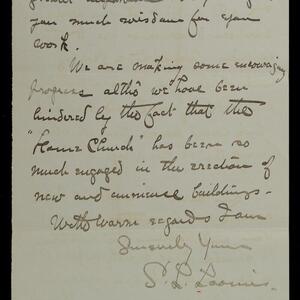 you much wisdom for your
work.
We are making some encouraging
progress altho we have been
hindered by the fact that the
"Home Church" has been so
much engaged in the erection of
new and buildings.
With warm regards I am
Sincerely Yours
S. L. Loomis.